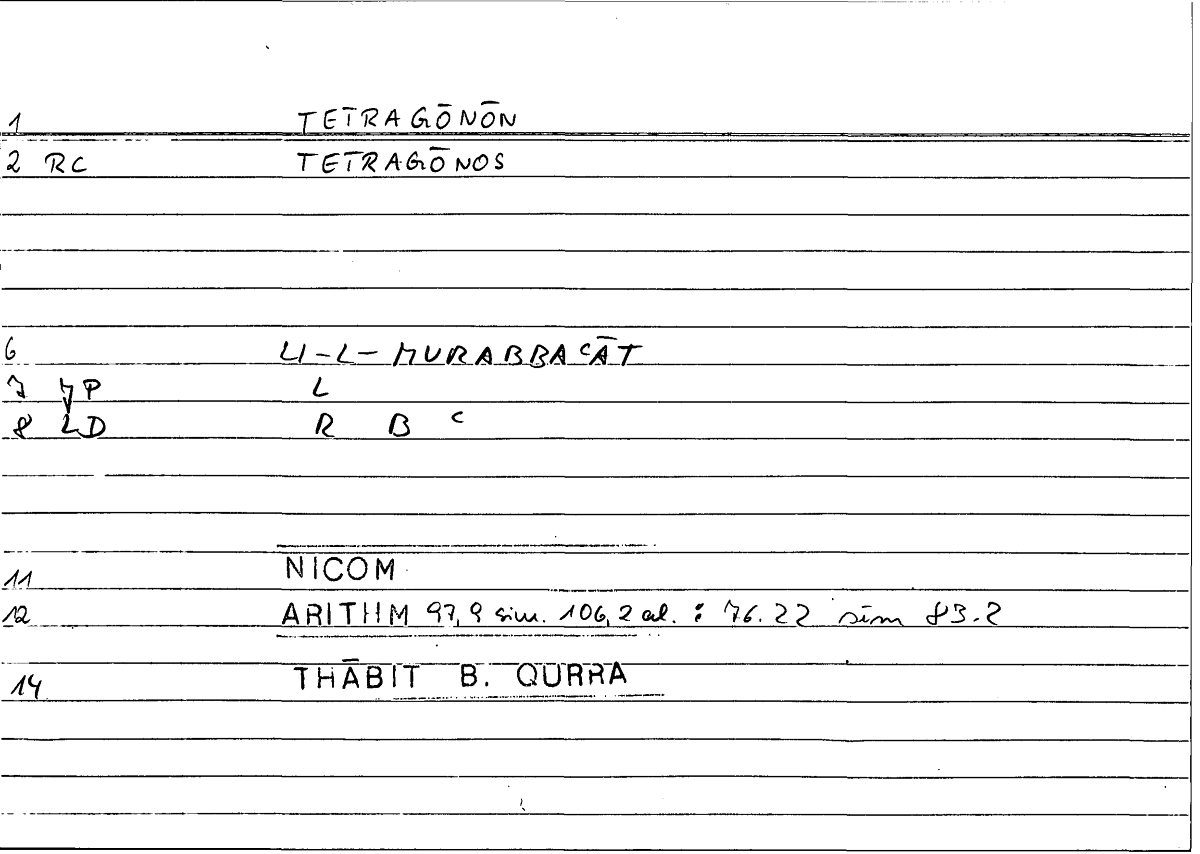 1 TETRAGŌNŌN
2 RC TETRAGŌNOS
6 LI-L-MURABBAᶜĀT
7 MP L
8 LD R B ᶜ
11 NICOM
12 ARITHM 97,9 sim. 106,2 al. : 76.22 sim 83.2
14 THĀBIT B. QURRA